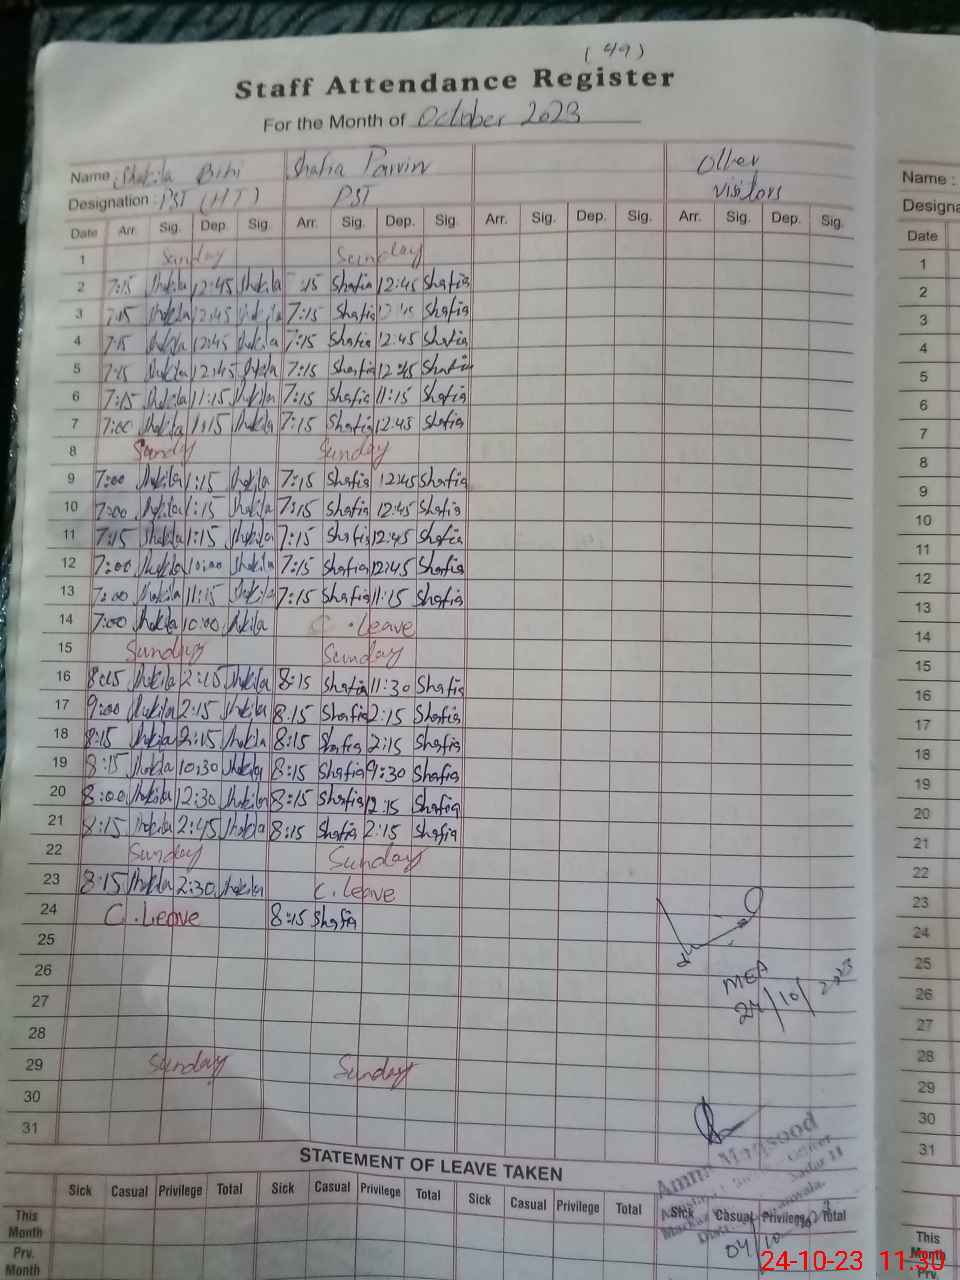 (49)
Staff Attendance Register
For the Month of October 2023
Name Shakila Bibi Shafia Parvin Other Name :
Designation : PST (HT) PST visitors
Date Arr. Sig. Dep. Sig. Arr. Sig. Dep. Sig. Arr. Sig. Dep. Sig. Arr. Sig. Dep. Sig. Date
1 Sunday Sunday 1
2 7:15 Shakila 12:45 Shakila :15 Shafia 12:45 Shafia 2
3 7:15 Shakila 12:45 Shakila 7:15 Shafia 12:45 Shafia 3
4 7:15 Shakila 12:45 Shakila 7:15 Shafia 12:45 Shafia 4
5 7:15 Shakila 12:45 Shakila 7:15 Shafia 12:45 Shafia 5
6 7:15 Shakila 11:15 Shakila 7:15 Shafia 11:15 Shafia 6
7 7:00 Shakila 1:15 Shakila 7:15 Shafia 12:45 Shafia 7
8 Sunday Sunday 8
9 7:00 Shakila 1:15 Shakila 7:15 Shafia 12:45 Shafia 9
10 7:00 Shakila 1:15 Shakila 7:15 Shafia 12:45 Shafia 10
11 7:15 Shakila 1:15 Shakila 7:15 Shafia 12:45 Shafia 11
12 7:00 Shakila 10:00 Shakila 7:15 Shafia 12:45 Shafia 12
13 7:00 Shakila 11:15 Shakila 7:15 Shafia 11:15 Shafia 13
14 7:00 Shakila 10:00 Shakila C.Leave 14
15 Sunday Sunday 15
16 8:15 Shakila 2:15 Shakila 8:15 Shafia 11:30 Shafia 16
17 9:00 Shakila 2:15 Shakila 8:15 Shafia 2:15 Shafia 17
18 8:15 Shakila 2:15 Shakila 8:15 Shafia 2:15 Shafia 18
19 8:15 Shakila 10:30 Shakila 8:15 Shafia 9:30 Shafia 19
20 8:00 Shakila 12:30 Shakila 8:15 Shafia 12:15 Shafia 20
21 8:15 Shakila 2:45 Shakila 8:15 Shafia 2:15 Shafia 21
22 Sunday Sunday 22
23 8:15 Shakila 2:30 Shakila C.Leave 23
24 C.Leave 8:15 Shafia 24
25 25
26 MEA 26
27 24/10/2023 27
28 28
29 Sunday Sunday 29
30 30
31 31
STATEMENT OF LEAVE TAKEN
Sick Casual Privilege Total Sick Casual Privilege Total Sick Casual Privilege Total Sick Casual Privilege Total
This Month This Month
Prv. Month Prv.
04/10
24-10-23 11:30